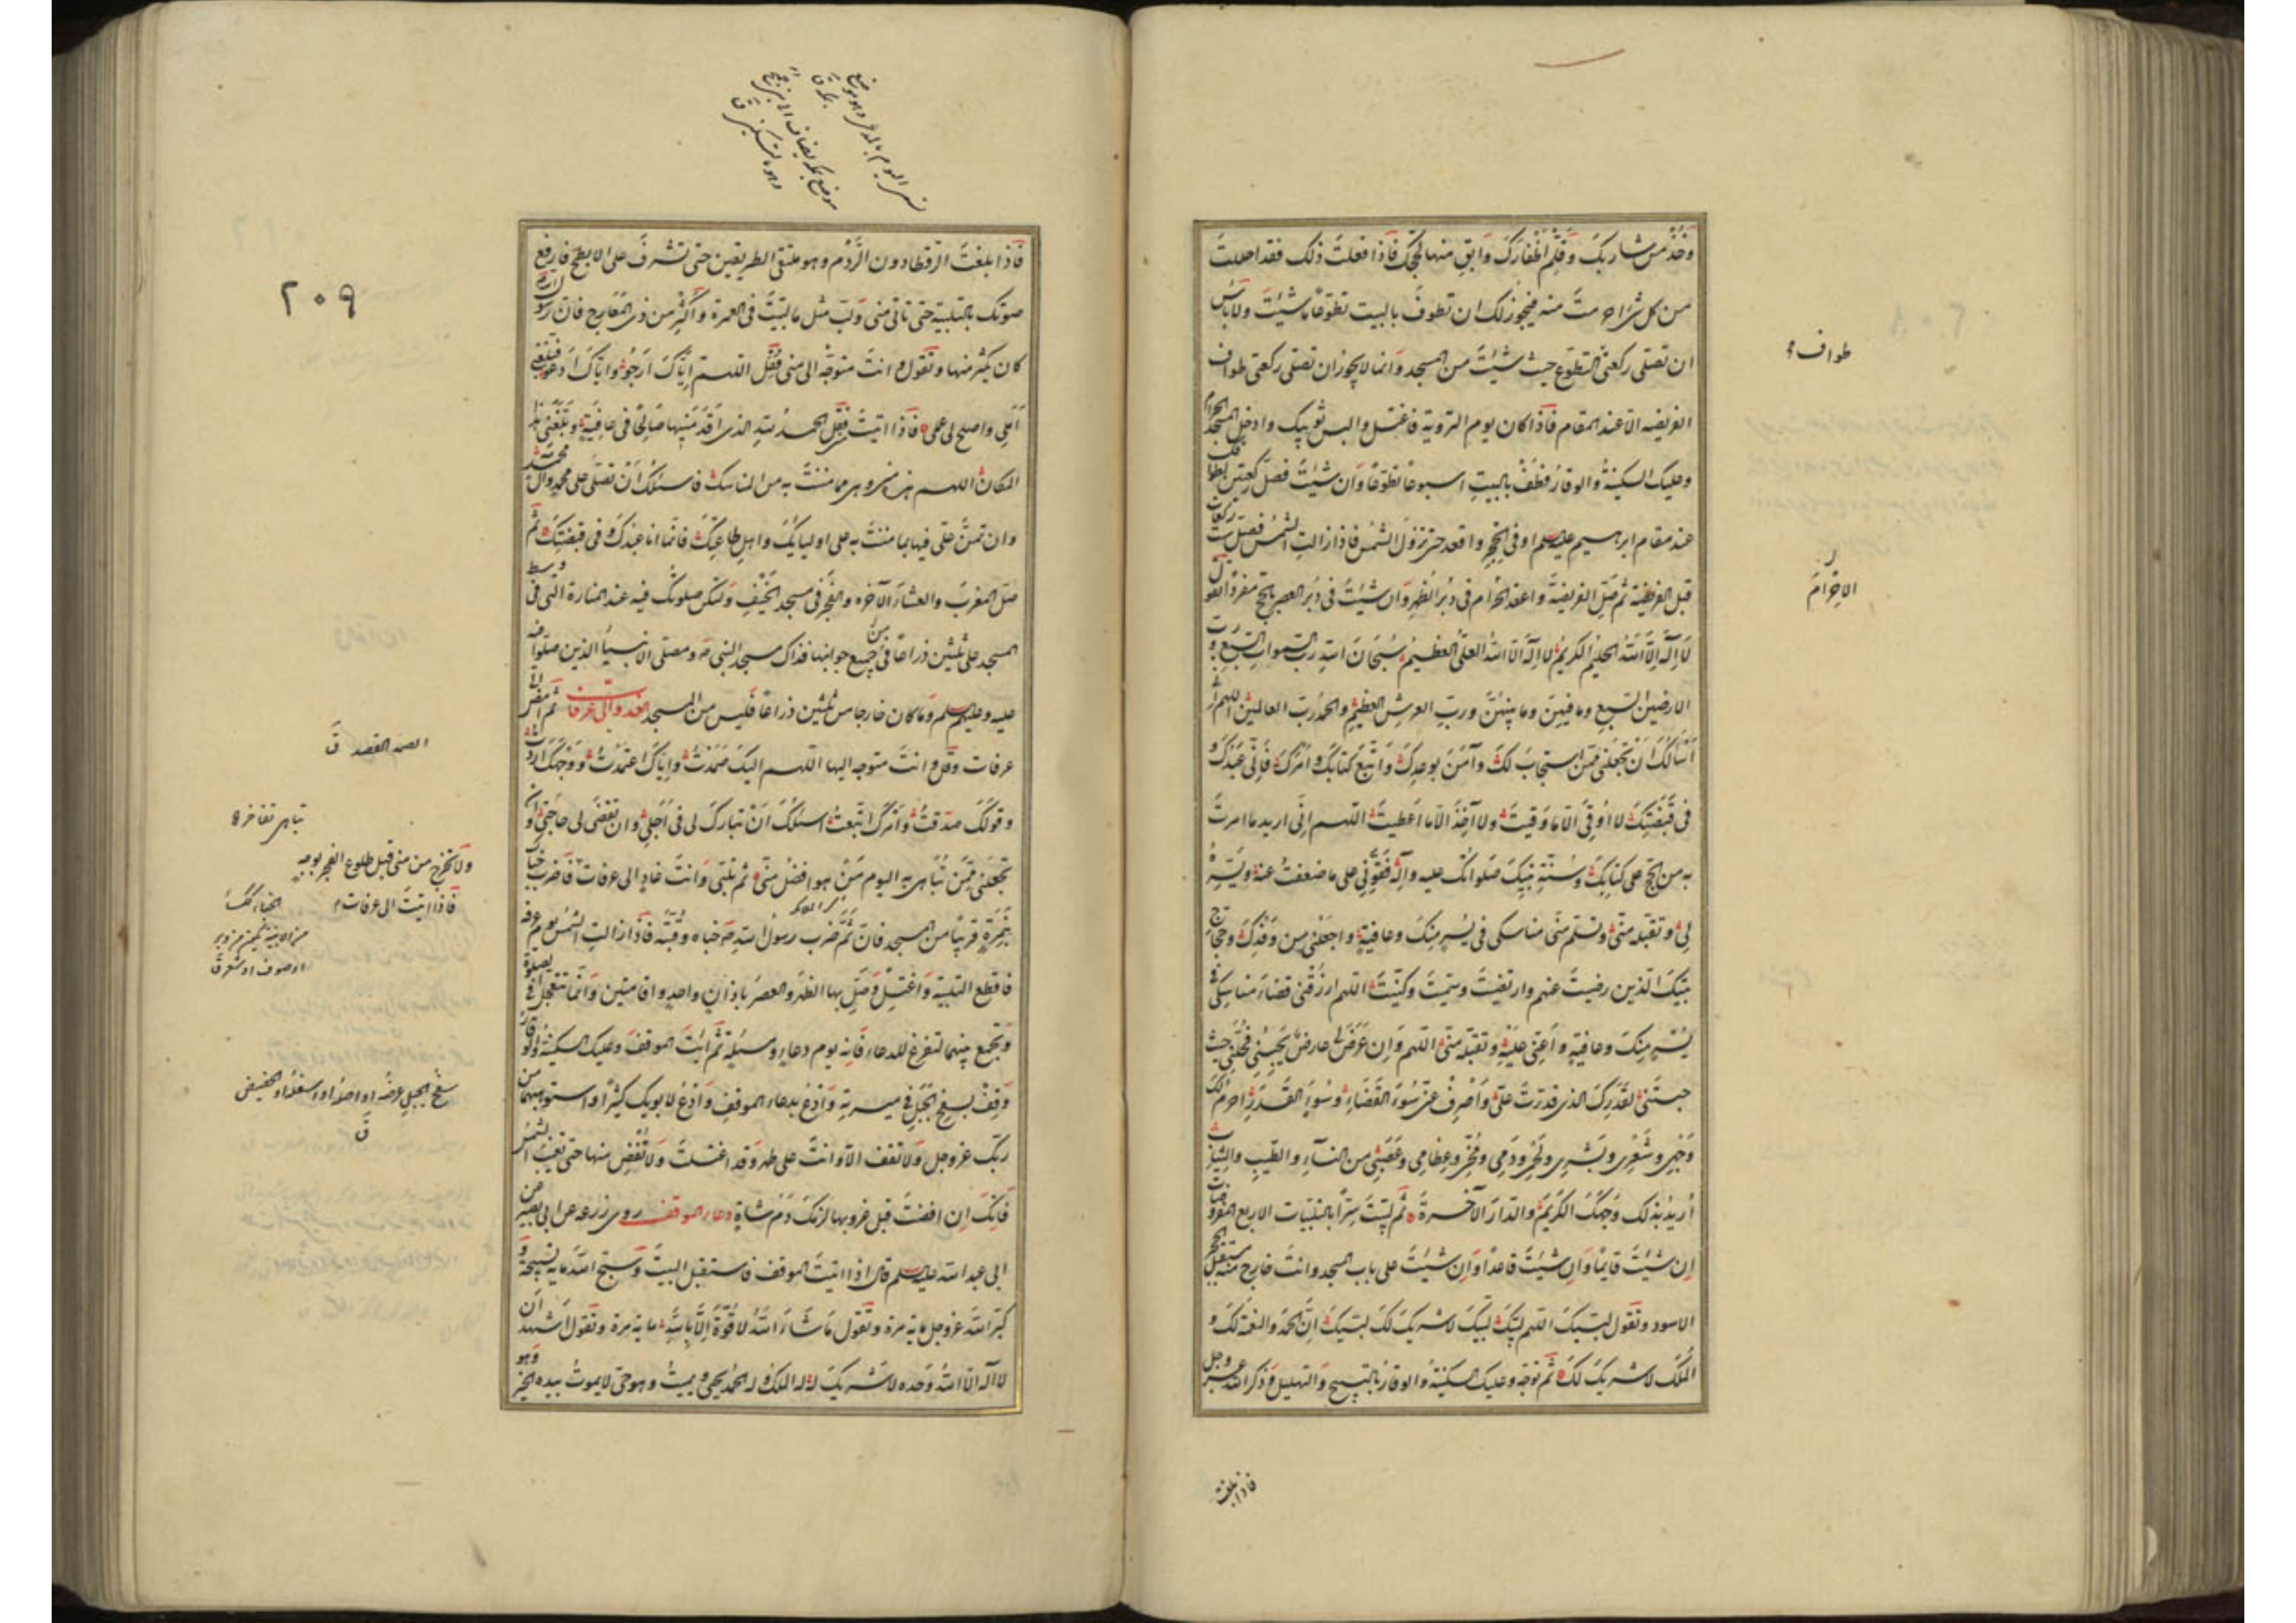 وَخُذْ من شاربك وَقَلِّمْ اظفارَكَ وَابقِ منها لحجّك فَاذا فعلتَ ذلك فقد احللتَ
من كل شئ احرمتَ منه فيجوز لك ان تطوفَ بالبيت تطوّعًا ما شئتَ ولا باس
ان تصلى ركعتى التطوّع حيث شئتَ من المسجد وَانما لا يجوز ان تصلى ركعتى طواف
الفريضه الّا عند المقام فَاذا كان يوم التروية فاغتسل والبس ثوبيك وادخل المسجد الحرام
وعليك السكينةُ والوقارُ فَطُفْ بالبيت اسبوعًا تطوّعًا وَان شئتَ فصلّ ركعتين لطوافك
عند مقام ابرهيم عليه السلم او فى الحجر واقعد حتى تزولَ الشمسُ فاذا زالتِ الشمسُ فصلّ ست ركعات
قبل الفريضة ثم صَلِّ الفريضةَ واعقد الاحرام فى دُبُرِ الظهر وَان شئتَ فى دُبُر العصر بالحج مفردًا تقول
لا اله الّا اللهُ الحليمُ الكريمُ لا اله الّا اللهُ العلىُّ العظيمُ سُبحانَ اللهِ ربِّ السموات السبع و ربّ
الارضين السبع وما فيهنّ وما بينهنّ وربّ العرش العظيمِ والحمد لله ربّ العالمين اللهم انى
اَسْاَلُكَ اَنْ تجعَلَنى ممّن استجابَ لكَ وَآمَنَ بوعدك وَاتّبع كتابَك وامرَك فَاِنّى عَبْدُكَ و
فى قَبْضَتِكَ لا اُوقى الّا ما وقيتَ ولا آخُذُ الّا ما اعطيتَ اللهم اِنّى اريد ما امرتَ
به من الحجّ على كتابِكَ وسُنّةِ نبيّكَ صَلَواتُك عليه وآله فَقَوِّنى على ما ضعفتُ عنه ويَسِّرْهُ
لى وتقبّله منّى وتسلّم منّى مناسكى فى يُسرٍ منكَ وعافيةٍ واجعلنى من وَفْدِكَ وحُجّاجِ
بيتكَ الّذين رضيتَ عنهم وارتضيتَ وسمّيتَ وكنّيتَ اللهم ارزُقنى قضاءَ مناسكى فى
يُسْرٍ مِنكَ وعافيةٍ واَعِنّى عَلَيهِ وتقبّله منّى اللهم وَاِن عَرَضَ لى عارضٌ يَحبِسُنى فحُلَّنى حيث
حبستَنى لقَدَرِكَ الذى قدرتَ علىَّ وَاصْرِفْ عنّى سُوءَ القَضاءِ وسُوءَ القَدَرِ احرمُ لكَ
وَجْهى وشَعْرى وبَشَرى ولَحْمى ودَمى ومُخّى وعِظامى وعَصَبى من النساء والطيب والثياب
اُريدُ بذلك وَجْهَكَ الكريمَ والدّارَ الآخرةَ ثُمّ لَبّيتَ سِرًّا بالتلبيات الاربع المفروضات
اِن شئتَ قايمًا وَاِن شئتَ قاعدًا وَاِن شئتَ على باب المسجد وانت خارج منه مستقبل الحجر
الاسود وتقول لبّيكَ اللهم لبّيكَ لبّيكَ لا شريكَ لكَ لبّيكَ اِنَّ الحمدَ والنعمةَ لكَ و
المُلكَ لا شريكَ لكَ ثم توجّه وعليك السكينةُ والوقارُ بالتسبيح والتهليل وذكر الله عزّ وجل
طواف
الاحرام
فاذا بلغت
فَاذا بلغتَ الرّقطا دون الرَّدْم وهو ملتقى الطريقين حتى تشرفَ على الابطح فارفع
صوتك بالتلبية حتى تاتى منى وَلَبِّ مثل ما لبّيتَ فى العمرة وَاكثِر من ذى المعارج فان رسول الله ص
كان يكثر منها وتقول وانت متوجّه الى منى فَقُلِ اللهم اِيّاكَ اَرجُو واِيّاكَ ادعو فبلّغنى
اَمَلى واصلح لى عملى فَاذا اتيتَ فَقُل الحمدُ لله الذى اَقدَمَنيها صالحًا فى عافيةٍ وبَلّغَنى هذا
المكانَ اللهم هذه منى وهى ممّا مننتَ به من المناسك فاسئلك اَنْ تصلّى على محمد وآل محمد
وان تمنّ علىّ فيها بما مننتَ به على اوليائكَ واهلِ طاعتِكَ فانّما انا عبدكَ وفى قبضتِكَ ثم
صلّ المغربَ والعشاءَ الآخره والفجرَ فى مسجد الخَيْفِ ولتكن صلوتُك فيه عند المنارة التى فى وسط
المسجد على ثلثين ذراعًا من جميع جوانبها فذاك مسجد النبى ص ومصلّى الانبياء الذين صلّوا فيه
عليه وعليهم السلم وَما كان خارجا من ثلثين ذراعًا فَليس من المسجد الغدوّ الى عرفات ثم امض الى
عرفات وَقُل وانت متوجّه اليها اللهم اليكَ صَمَدتُ واِيّاكَ اعتمدتُ ووَجهَكَ اردتُ
وقولَكَ صدّقتُ وَامرَكَ اتّبعتُ اسئلكَ اَنْ تباركَ لى فى اَجَلى وان تَقضىَ لى حاجتى وَان
تجعَلَنى ممّن تُباهى به اليوم مَنْ هو افضل منّى ثم تُلَبّى وَانتَ غادٍ الى عرفات فاضرب خباك
بنَمِرَةٍ قريبًا من المسجد فانّ ثَمَّ ضرب رسول الله ص خباه وقُبّته فَاذا زالت الشمس يوم عرفه
فاقطع التلبية وَاغتسِل وَصَلِّ بها الظهر والعصرَ باذانٍ واحدٍ واقامتين وَانّما تتعجّل فى الصلوة
وَتجمع بينهما لتفرغ للدعاء فَانه يوم دعاءٍ ومسئلة ثم ائتَ الموقفَ وعليك السكينةُ والوقارُ
وَقِفْ بسفح الجبل فى ميسرته وَادْعُ بدعاء الموقفِ وَادْعُ لابويك كثيرًا واستوهبهما من
ربّك عزوجل ولا تقف الّا وانتَ على طهر وَقد اغتسلتَ ولا تُفِض منها حتى تغيبَ الشمس
فَانّكَ اِن افضتَ قبل غروبها لزمكَ دَمُ شاةٍ دعاء الموقف روى زرعه عن ابى بصير عن
ابى عبد الله عليه السلم قال اذا اتيتَ الموقف فاستقبل البيتَ وَسبّح اللهَ ماية تسبيحة و
كبّر اللهَ عزوجل ماية مرة وتقول ما شاء اللهُ لا قُوّةَ اِلّا بِاللهِ ماية مرة وتقول اشهد ان
لا اله الّا اللهُ وحده لا شريكَ له له الملكُ وله الحمدُ يحيى ويميتُ وهو حىّ لا يموتُ بيده الخير وهو
٢٠٩
الصمد القصد ق
تباهى تفاخر
ولا تخرج من منى قبل طلوع الفجر بوجهٍ
فَاذا اتيتَ الى عرفات
الخباء ككساء
من الابنية يكون من وبر
او صوف او شعر ق
سفح الجبل عرضه او اصله او اسفله او الحضيض
ق